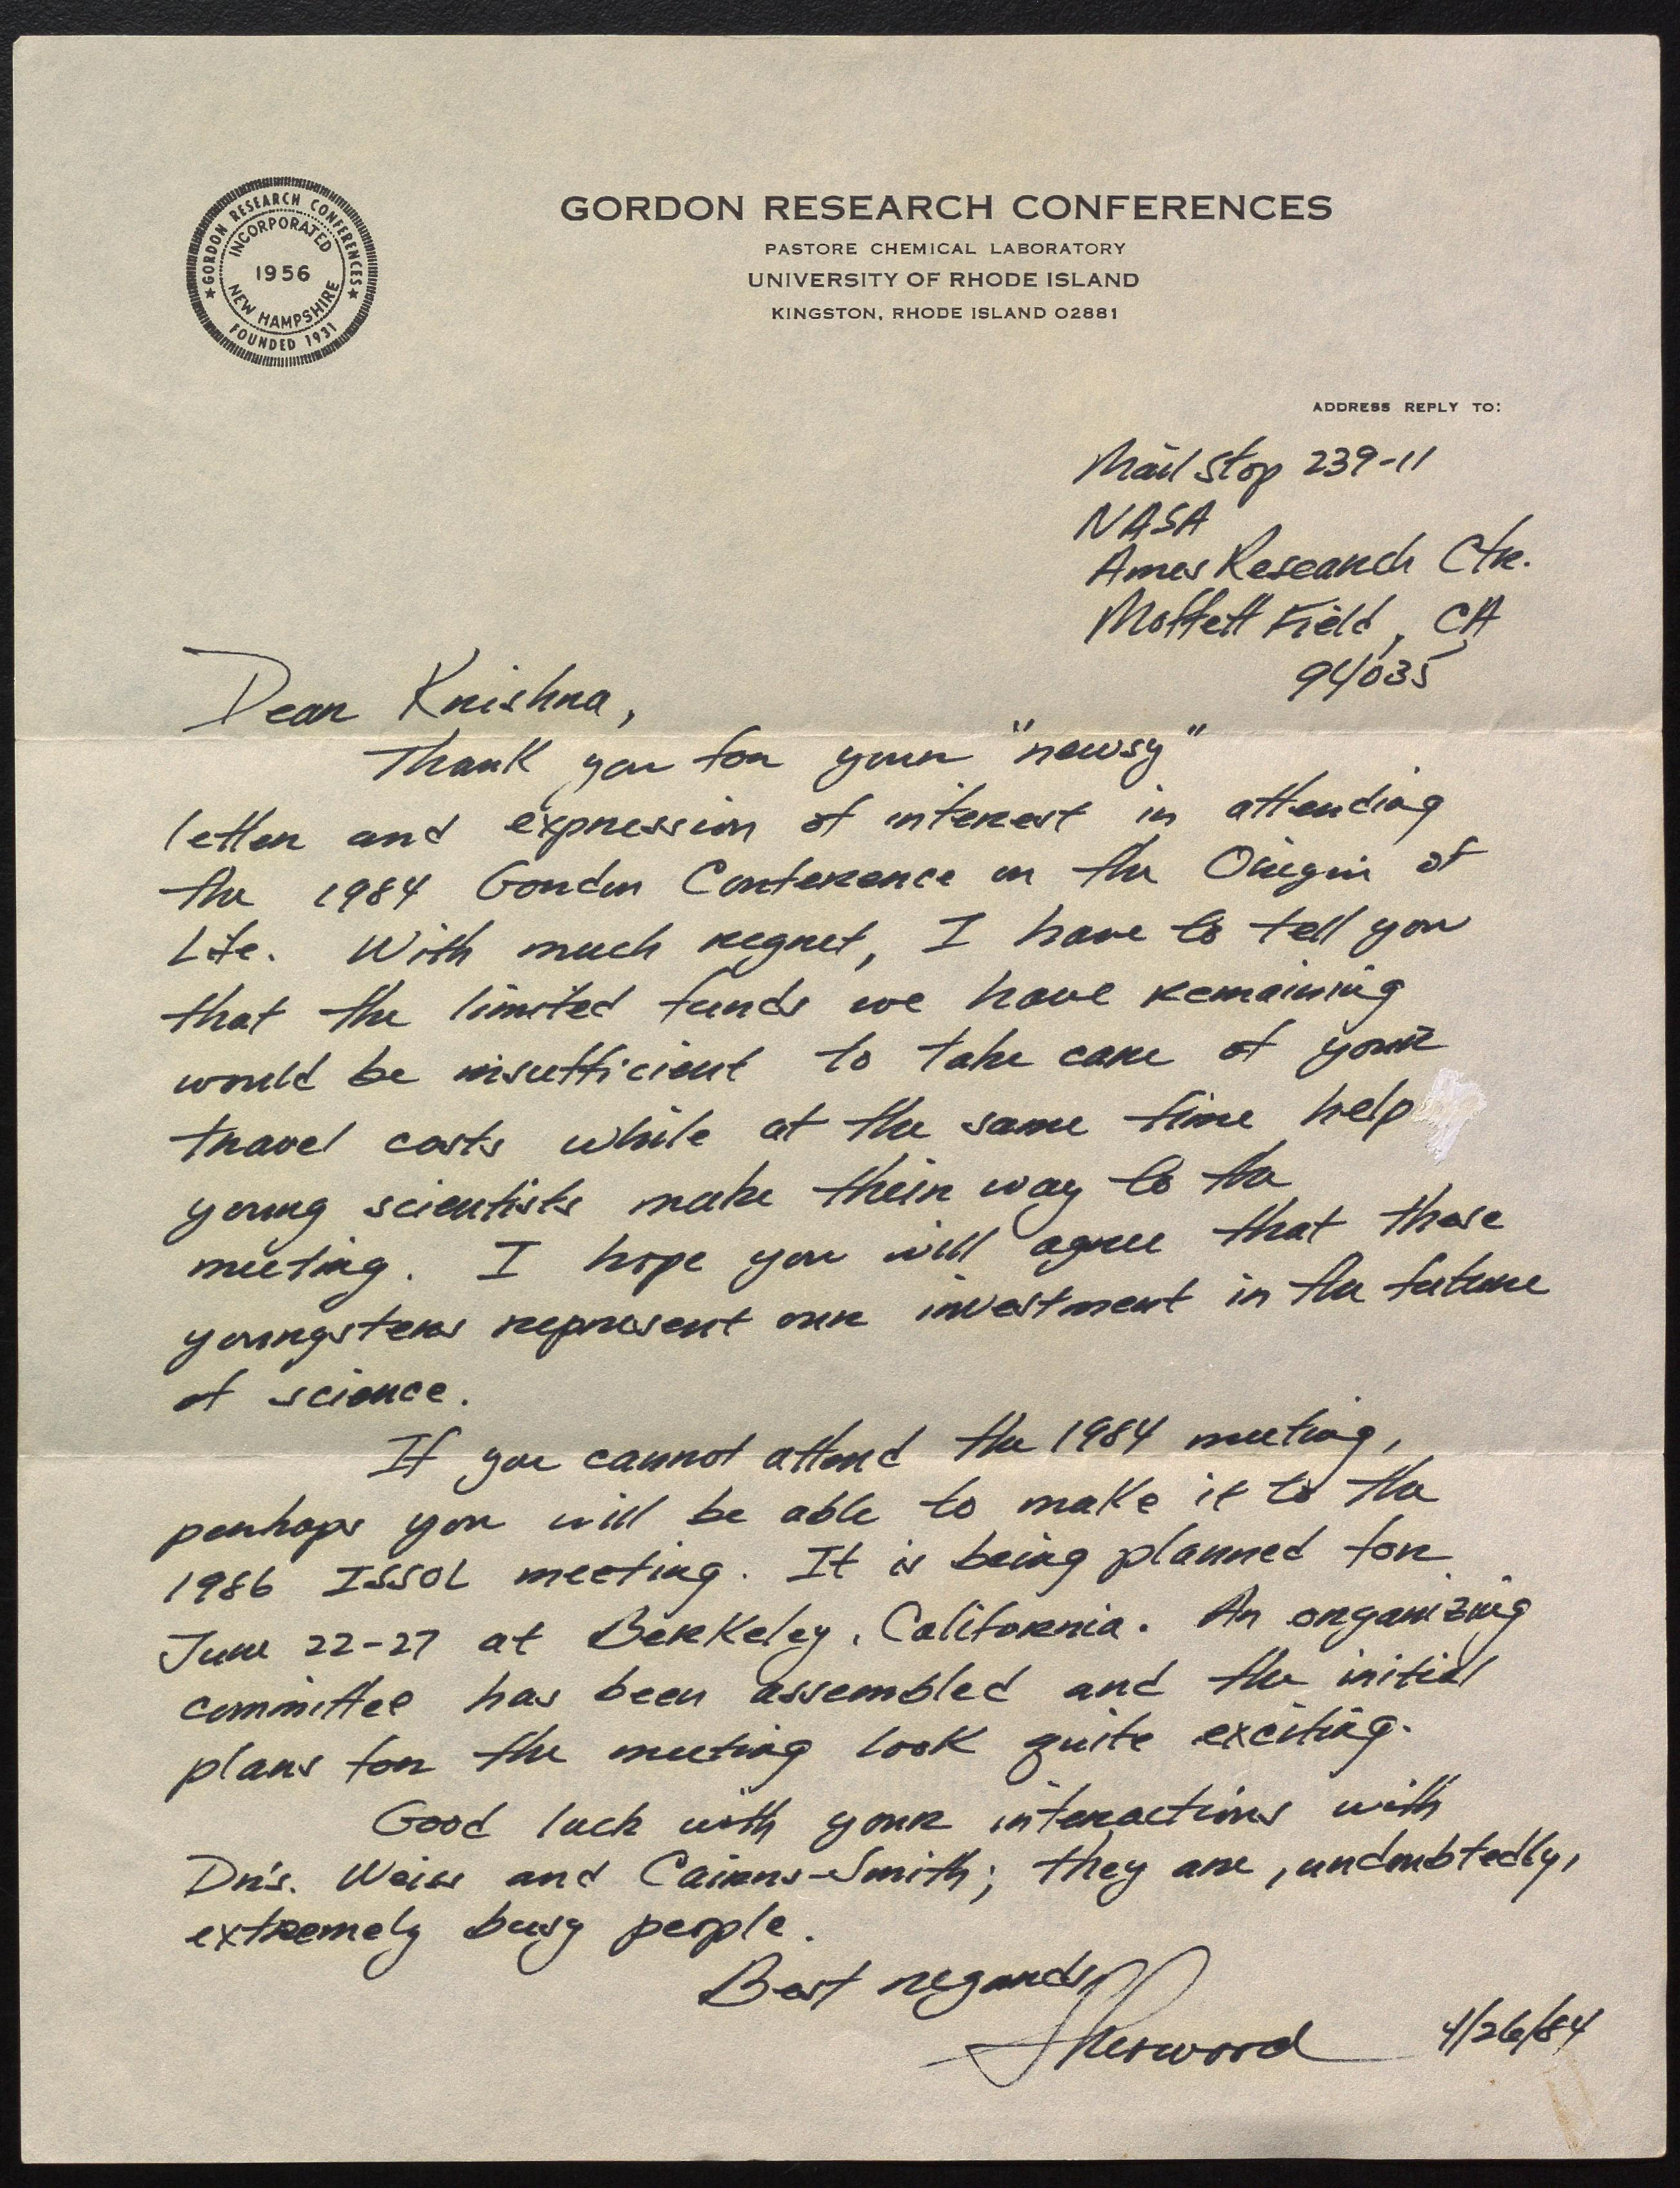 GORDON RESEARCH CONFERENCES
INCORPORATED
1956
NEW HAMPSHIRE
FOUNDED 1931
GORDON RESEARCH CONFERENCES
PASTORE CHEMICAL LABORATORY
UNIVERSITY OF RHODE ISLAND
KINGSTON, RHODE ISLAND 02881
ADDRESS REPLY TO:
Mail Stop 239-11
NASA
Ames Research Ctr.
Moffett Field, CA
94035
Dear Krishna,
Thank you for your "newsy"
letter and expression of interest in attending
the 1984 Gordon Conference on the Origin of
Life. With much regret, I have to tell you
that the limited funds we have remaining
would be insufficient to take care of your
travel costs while at the same time help
young scientists make their way to the
meeting. I hope you will agree that those
youngsters represent our investment in the future
of science.
If you cannot attend the 1984 meeting,
perhaps you will be able to make it to the
1986 ISSOL meeting. It is being planned for
June 22-27 at Berkeley, California. An organizing
committee has been assembled and the initial
plans for the meeting look quite exciting.
Good luck with your interactions with
Dr's. Weiss and Cairns-Smith; they are, undoubtedly,
extremely busy people.
Best regards,
Sherwood 4/26/84